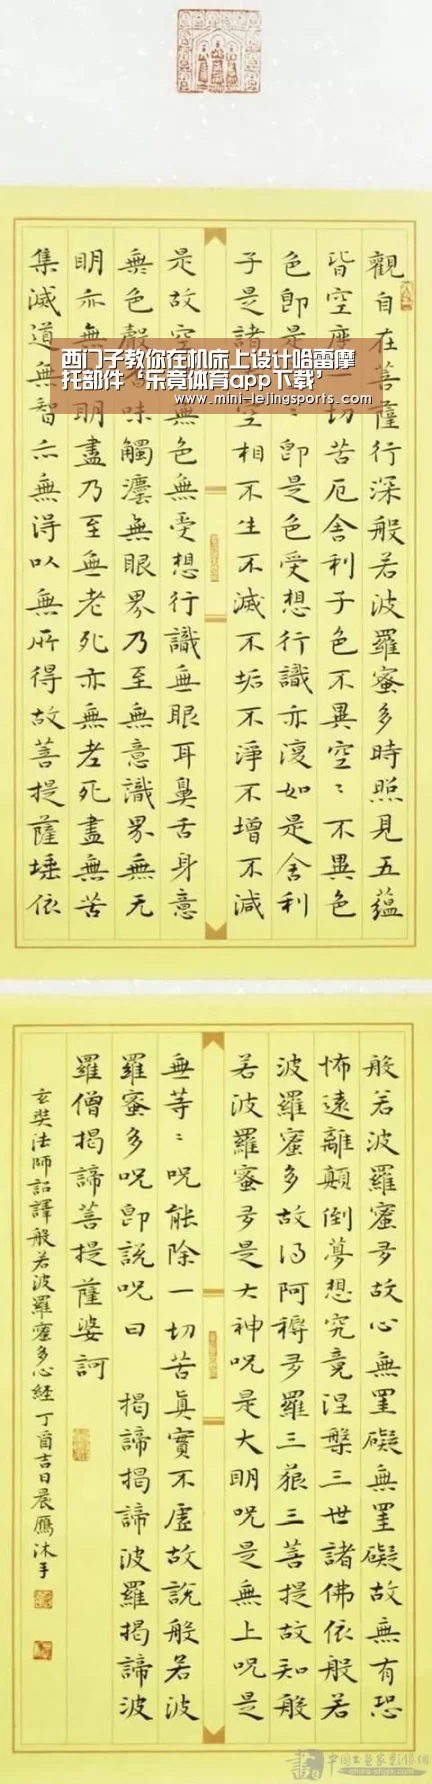 西门子教你在机床上设计哈雷摩
托部件‘乐竟体育app下载’
www.mini-lejingsports.com
觀自在菩薩行深般若波羅蜜多時照見五蘊
皆空度一切苦厄舍利子色不異空〻不異色
色即是〻即是色受想行識亦復如是舍利
子是諸空相不生不滅不垢不淨不增不減
是故空無色無受想行識無眼耳鼻舌身意
無色聲味觸灋無眼界乃至無意識界無无
明亦無明盡乃至無老死亦無老死盡無苦
集滅道無智亦無得以無所得故菩提薩埵依
般若波羅蜜多故心無罣礙無罣礙故無有恐
怖遠離顛倒夢想究竟涅槃三世諸佛依般若
波羅蜜多故得阿耨多羅三藐三菩提故知般
若波羅蜜多是大神咒是大明咒是無上咒是
無等〻咒能除一切苦真實不虛故說般若波
羅蜜多咒即說咒曰 揭諦揭諦波羅揭諦波
羅僧揭諦菩提薩婆訶
玄奘法師詔譯般若波羅蜜多心經丁酉吉日晨雁沐手
中国书画家影像网
china-shjyx.com